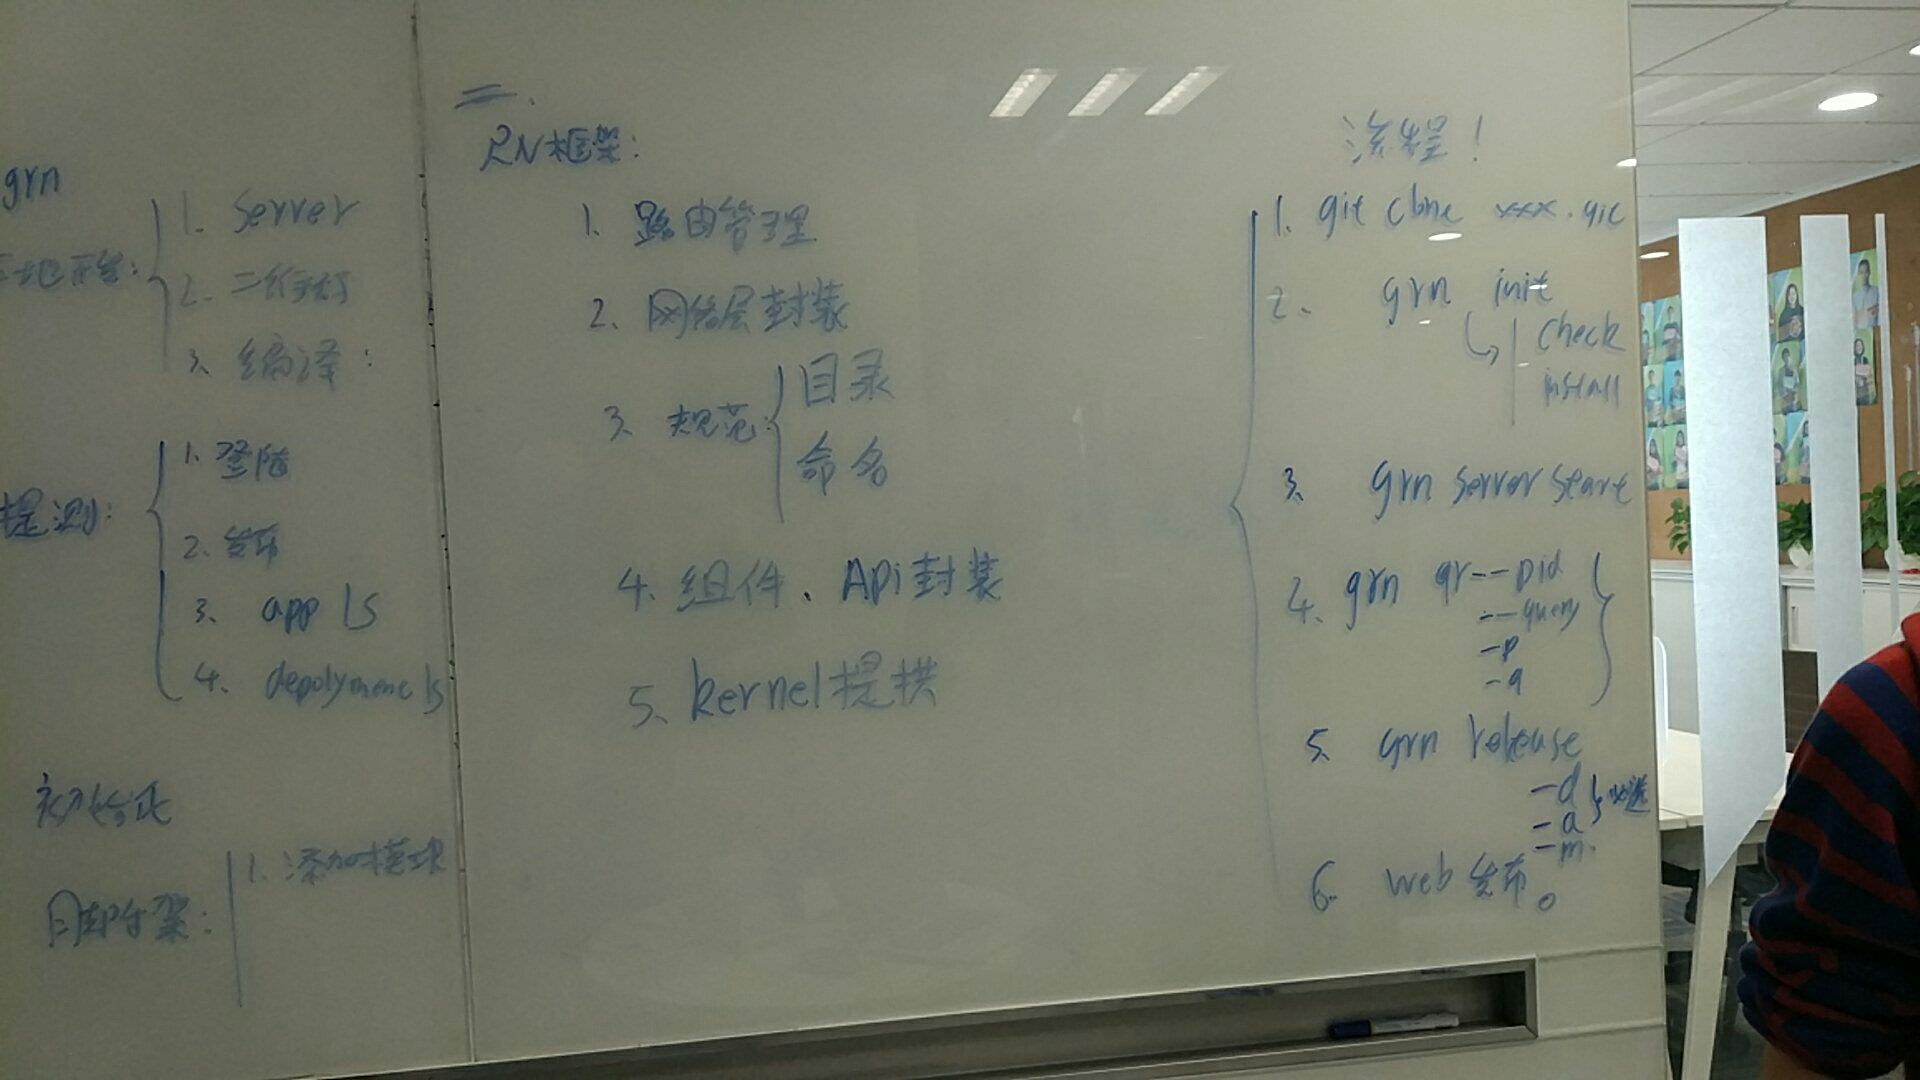 grn
地开发:
1. server
2. 二维码
3. 编译:
提测:
1. 登陆
2. 发布
3. app ls
4. depolyment ls
初始化
脚手架:
1. 添加模块
二.
RN框架:
1. 路由管理
2. 网络层封装
3. 规范:
目录
命名
4. 组件、Api封装
5. kernel提供
流程!
1. git clone xxx.git
2. grn init
check
install
3. grn server start
4. grn qr --pid
--query
-p
-q
5. grn release
-d
-a
必选
-m.
6. web 发布。